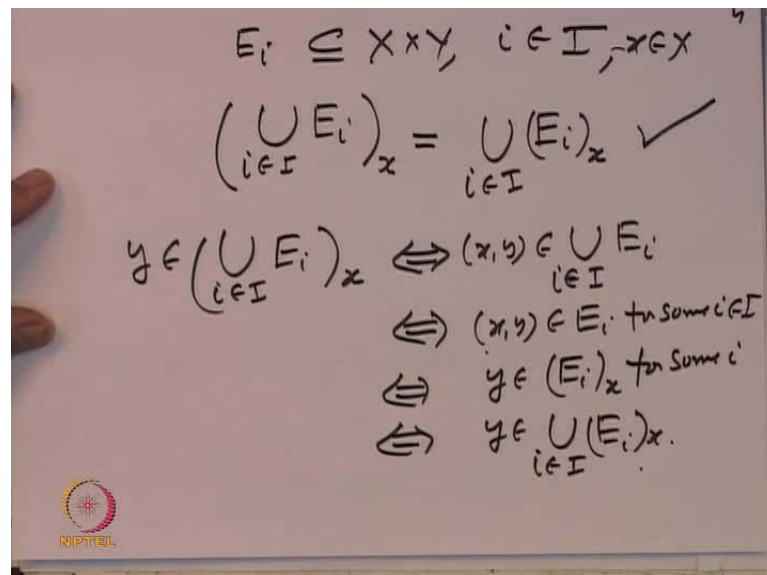 E_i ⊆ X×Y, i ∈ I, x∈X
(⋃_{i∈I} E_i)_x = ⋃_{i∈I} (E_i)_x ✓
y ∈ (⋃_{i∈I} E_i)_x ⇔ (x,y) ∈ ⋃_{i∈I} E_i
⇔ (x,y) ∈ E_i for some i∈I
⇔ y ∈ (E_i)_x for some i
⇔ y ∈ ⋃_{i∈I} (E_i)_x.
NPTEL